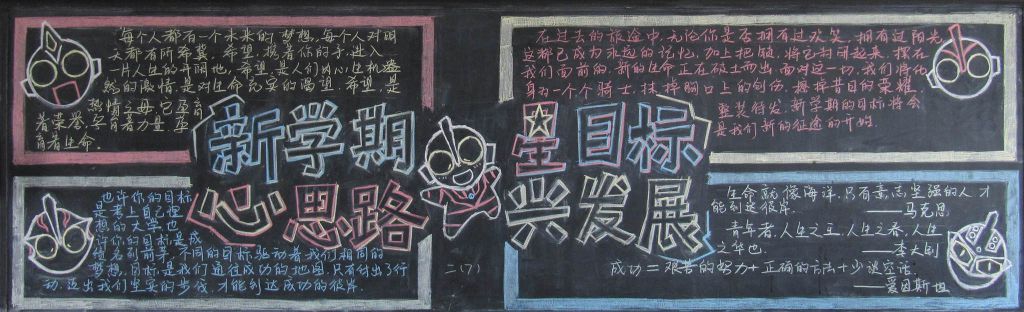 每个人都有一个未来的梦想,每个人对明
天都有所希冀,希望,携着你的手,进入
一片人生的开阔地,希望,是人们内心生机盎
然的激情,是对生命充实的渴望,希望,是
热情之母,它孕育
着荣誉,孕育着力量,孕
育着生命。
在过去的旅途中,无论你是否拥有过欢笑,拥有过阳光,
这都已成为永远的记忆,加上把锁,将它封闭起来,摆在
我们面前的,新的生命正在破土而出,面对这一切,我们将化
身为一个个骑士,抹掉胸口上的创伤,擦掉昔日的荣耀,
整装待发,新学期的目标将会
是我们新的征途的开始.
新学期
星目标
心思路
兴发展
也许你的目标
是考上自己理
想的大学,也
许你的目标是成
绩名列前茅,不同的目标,驱动着我们相同的
梦想,目标是我们通往成功的地图,只有付出了行
动,迈出我们坚实的步伐,才能到达成功的彼岸.
二(7)
生命就像海洋,只有意志坚强的人,才
能到达彼岸.
——马克思
青年者,人生之王,人生之春,人生
之华也.
——李大钊
成功=艰苦的努力+正确的方法+少谈空话.
——爱因斯坦